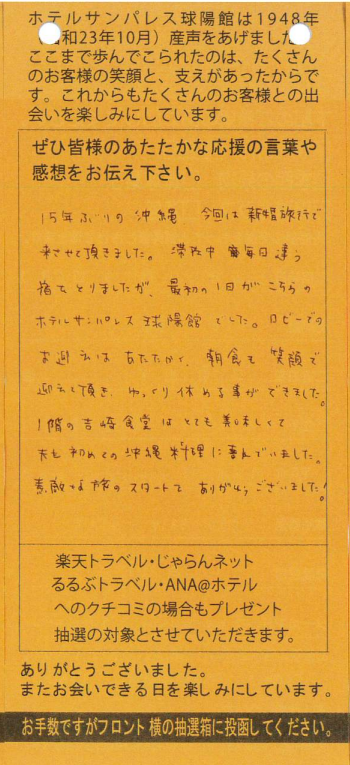 ホテルサンパレス球陽館は1948年
和23年10月）産声をあげました
ここまで歩んでこられたのは、たくさん
のお客様の笑顔と、支えがあったからで
す。これからもたくさんのお客様との出
会いを楽しみにしています。
ぜひ皆様のあたたかな応援の言葉や
感想をお伝え下さい。
15年ぶりの沖縄 今回は新婚旅行で
来させて頂きました。滞在中 毎日違う
宿をとりましたが、最初の1日がこちらの
ホテルサンパレス球陽館でした。ロビーでの
お迎えはあたたかく、朝食も笑顔で
迎えて頂き、ゆっくり休める事ができました。
1階の吉崎食堂はとても美味しくて
夫も初めての沖縄料理に喜んでいました。
素敵な旅のスタートで ありがとうございました!
楽天トラベル・じゃらんネット
るるぶトラベル・ANA@ホテル
へのクチコミの場合もプレゼント
抽選の対象とさせていただきます。
ありがとうございました。
またお会いできる日を楽しみにしています。
お手数ですがフロント横の抽選箱に投函してください。